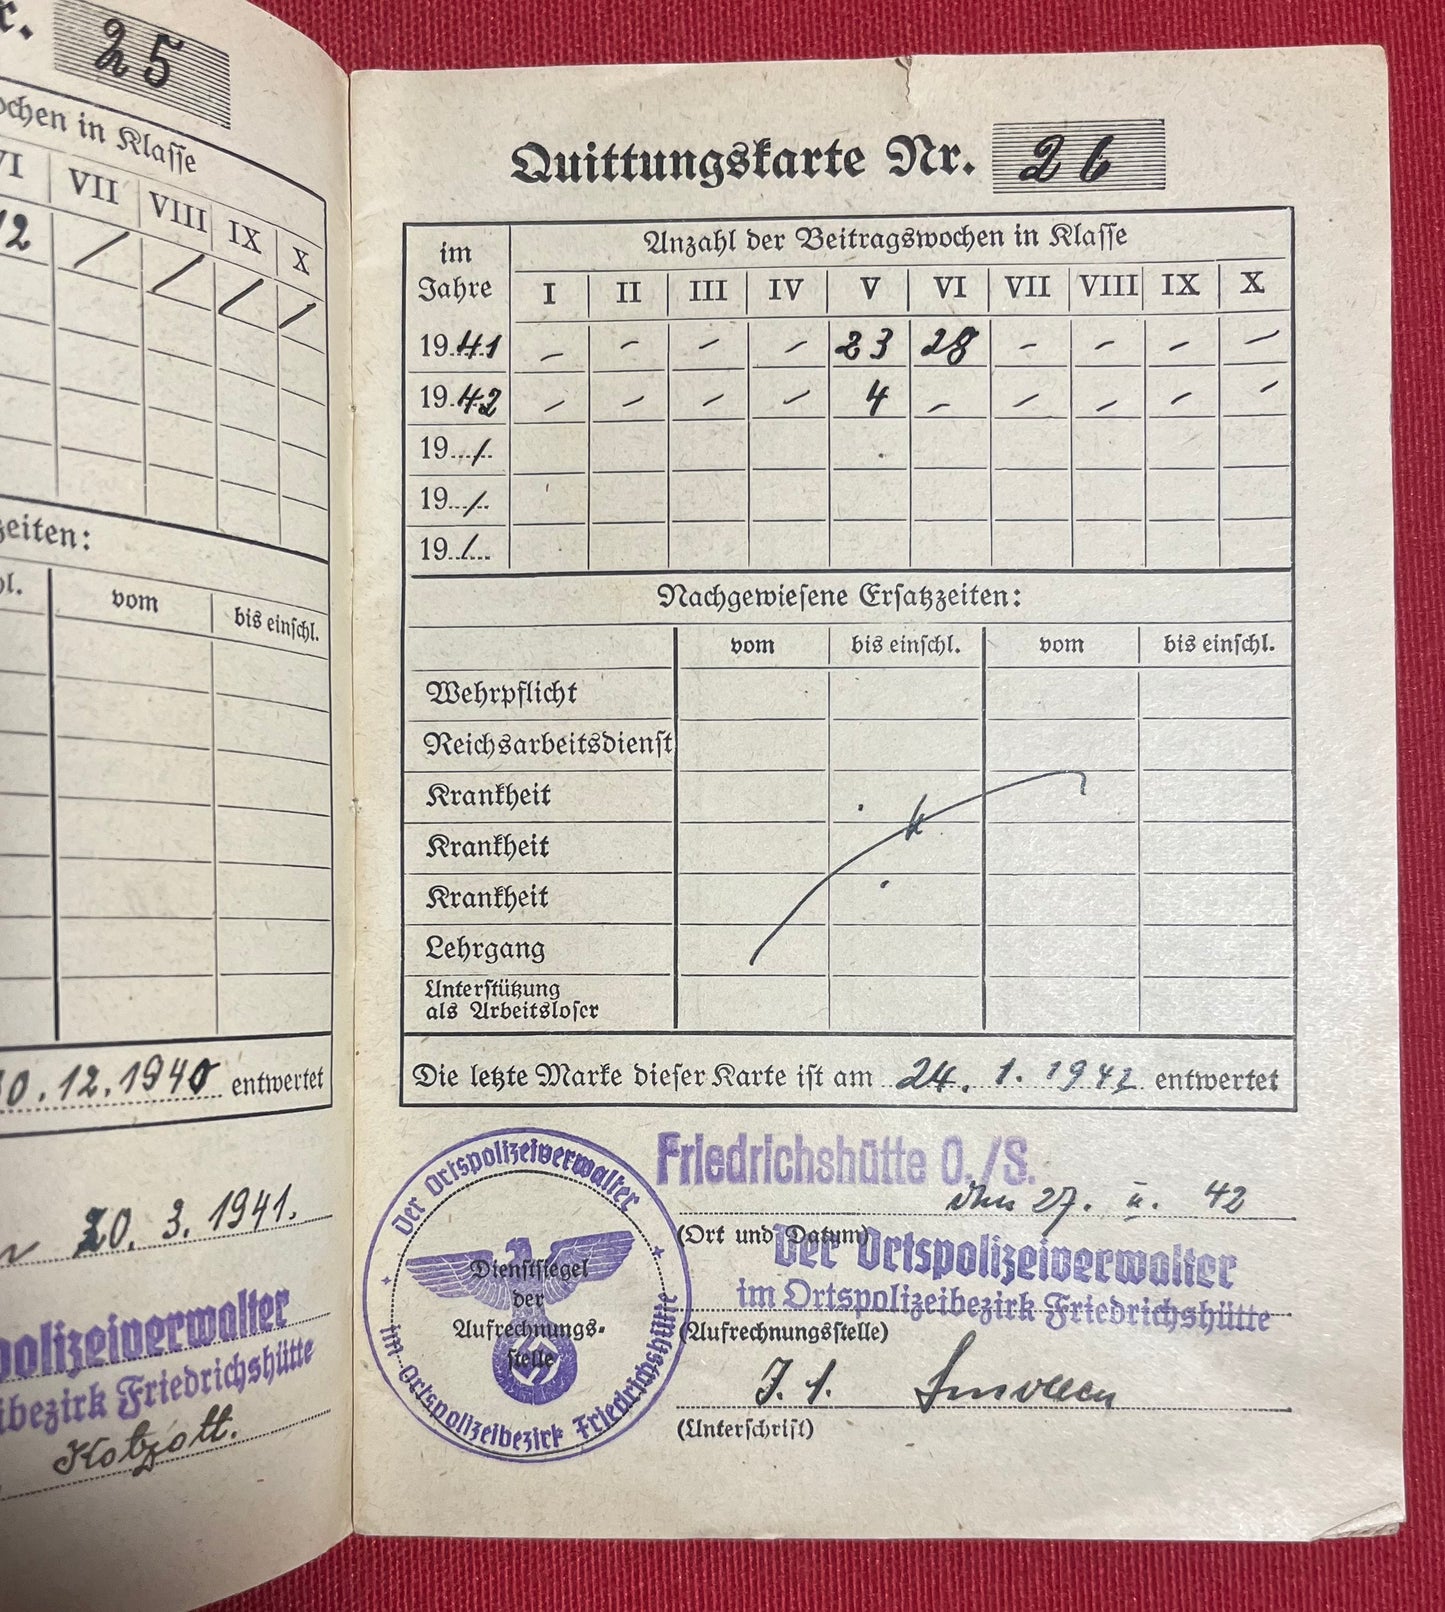 r. 25
ochen in Klasse
VI VII VIII IX X
12 / / / /
zeiten:
hl. vom bis einschl.
30.12.1940 entwertet
20. 3. 1941.
polizeiverwalter
ibezirk Friedrichshütte
Kotzott.
Quittungskarte Nr. 26
im Jahre
Anzahl der Beitragswochen in Klasse
I II III IV V VI VII VIII IX X
19 41 – – – – 23 28 – – – –
19 42 – – – – 4 – – – – –
19 /
19 /
19 /
Nachgewiesene Ersatzzeiten:
vom bis einschl. vom bis einschl.
Wehrpflicht
Reichsarbeitsdienst
Krankheit
Krankheit
Krankheit
Lehrgang
Unterstützung
als Arbeitsloser
Die letzte Marke dieser Karte ist am 24. 1. 1942 entwertet
Friedrichshütte O./S.
den 27. II. 42
(Ort und Datum)
Der Ortspolizeiverwalter
im Ortspolizeibezirk Friedrichshütte
(Aufrechnungsstelle)
(Unterschrift)
Der Ortspolizeiverwalter
im Ortspolizeibezirk Friedrichshütte
Dienstsiegel
der
Aufrechnungs-
stelle